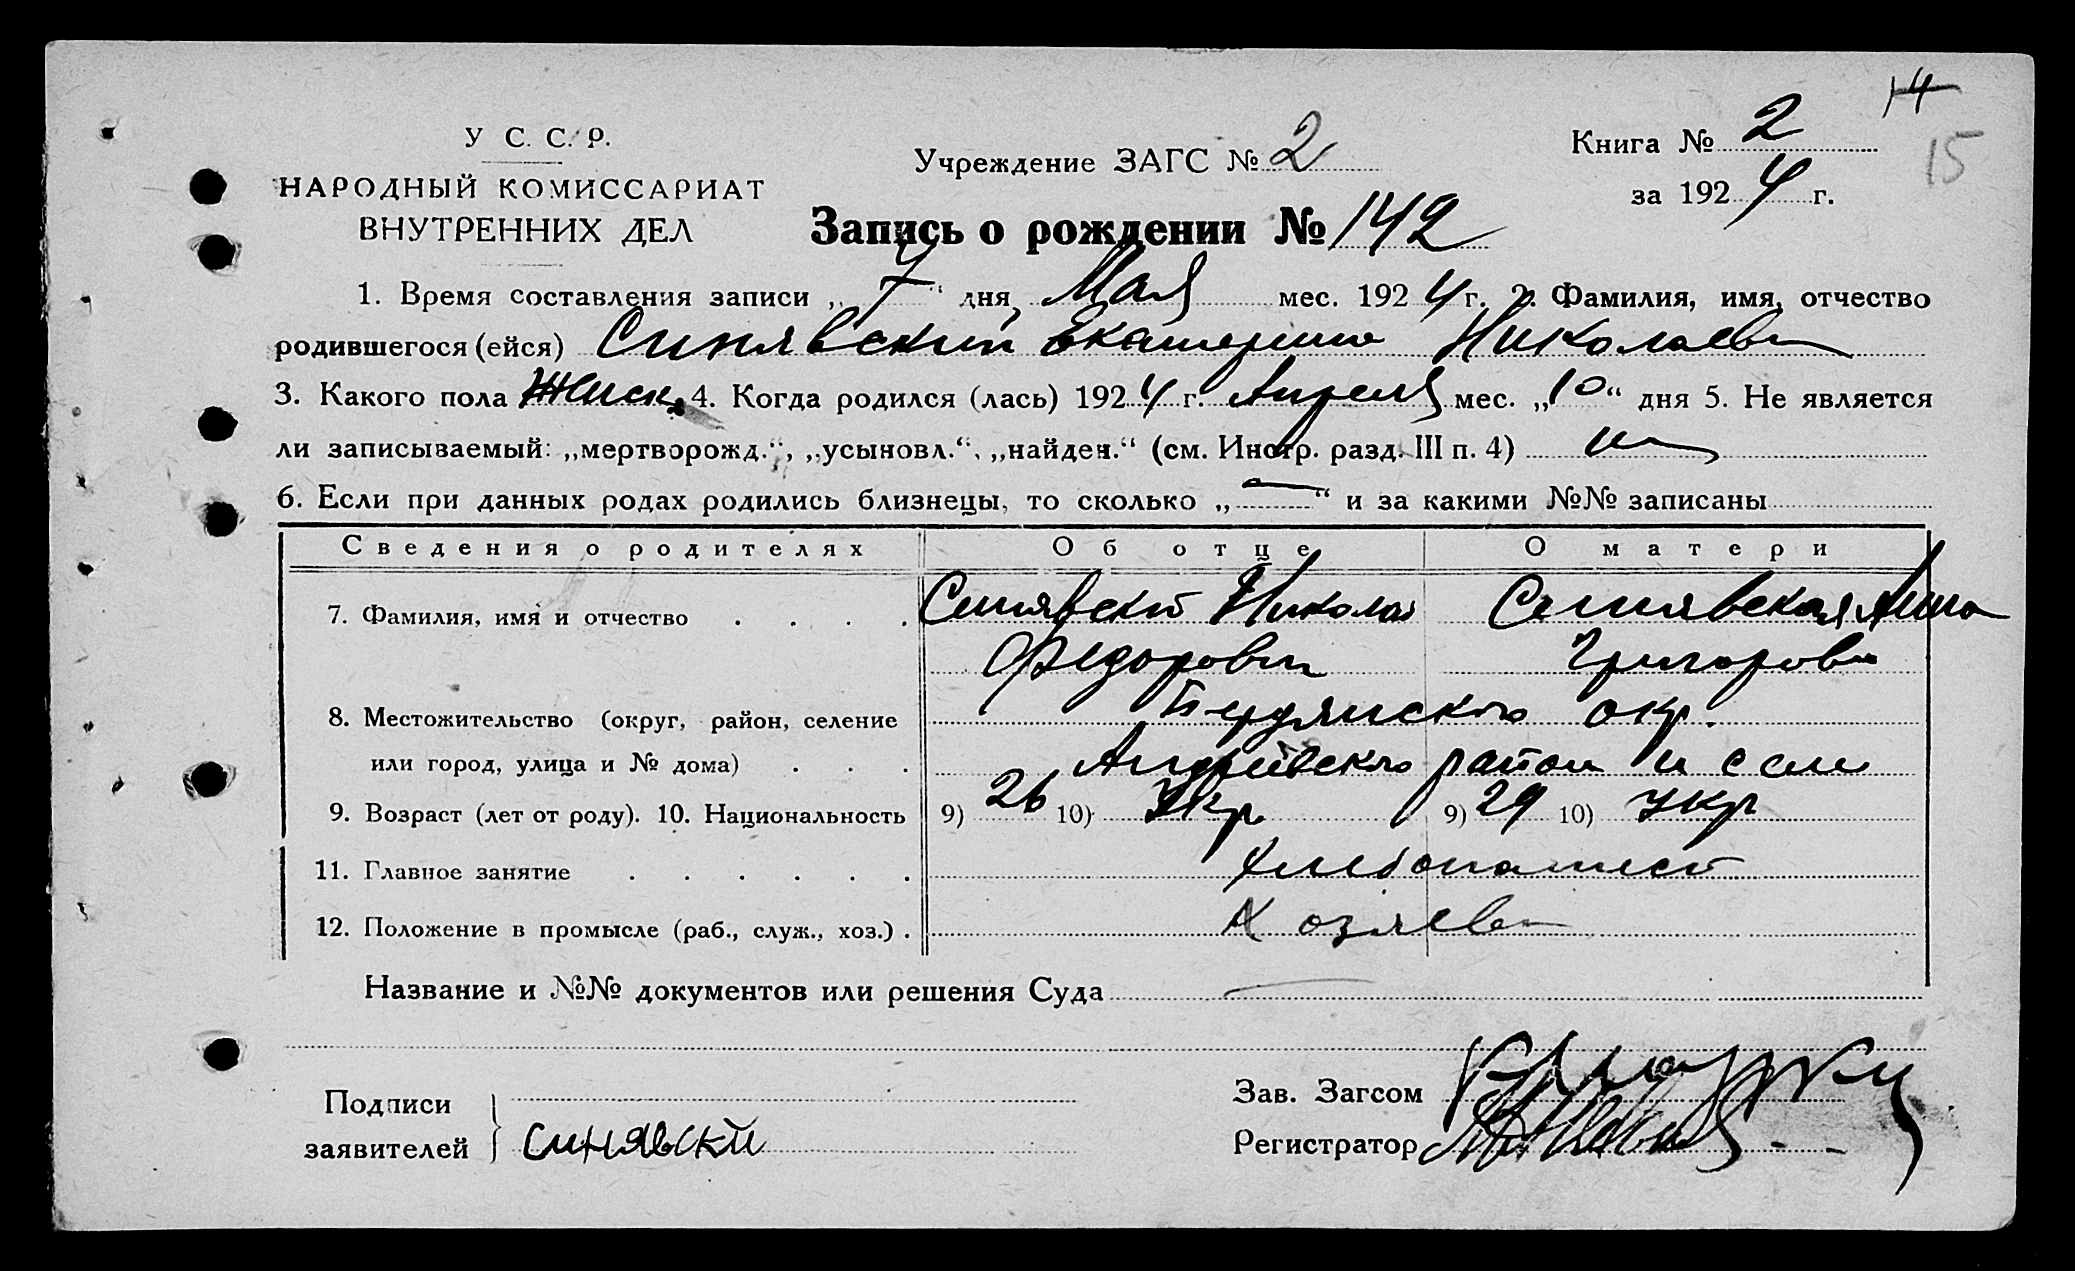 14
15
У С. С. Р.
НАРОДНЫЙ КОМИССАРИАТ
ВНУТРЕННИХ ДЕЛ
Учреждение ЗАГС № 2
Книга № 2
за 1924 г.
Запись о рождении № 142
1. Время составления записи „7“ дня Мая мес. 1924 г. 2. Фамилия, имя, отчество
родившегося (ейся) Синявский Екатерина Николаев
3. Какого пола Женск. 4. Когда родился (лась) 1924 г. Апреля мес. „10“ дня 5. Не является
ли записываемый: „мертворожд.“, „усыновл.“, „найден.“ (см. Инстр. разд. III п. 4)
6. Если при данных родах родились близнецы, то сколько „—“ и за какими №№ записаны
Сведения о родителях Об отце О матери
7. Фамилия, имя и отчество . . . . Синявский Николай Синявская Анна
Федорович Григоров
8. Местожительство (округ, район, селение Бердянского окр.
или город, улица и № дома) . . . Андреевского район и село
9. Возраст (лет от роду). 10. Национальность 9) 26 10) Укр 9) 29 10) Укр
11. Главное занятие . . . . . . Хлебопашест
12. Положение в промысле (раб., служ., хоз.) . Хозяев
Название и №№ документов или решения Суда —
Подписи
заявителей } Синявский
Зав. Загсом
Регистратор